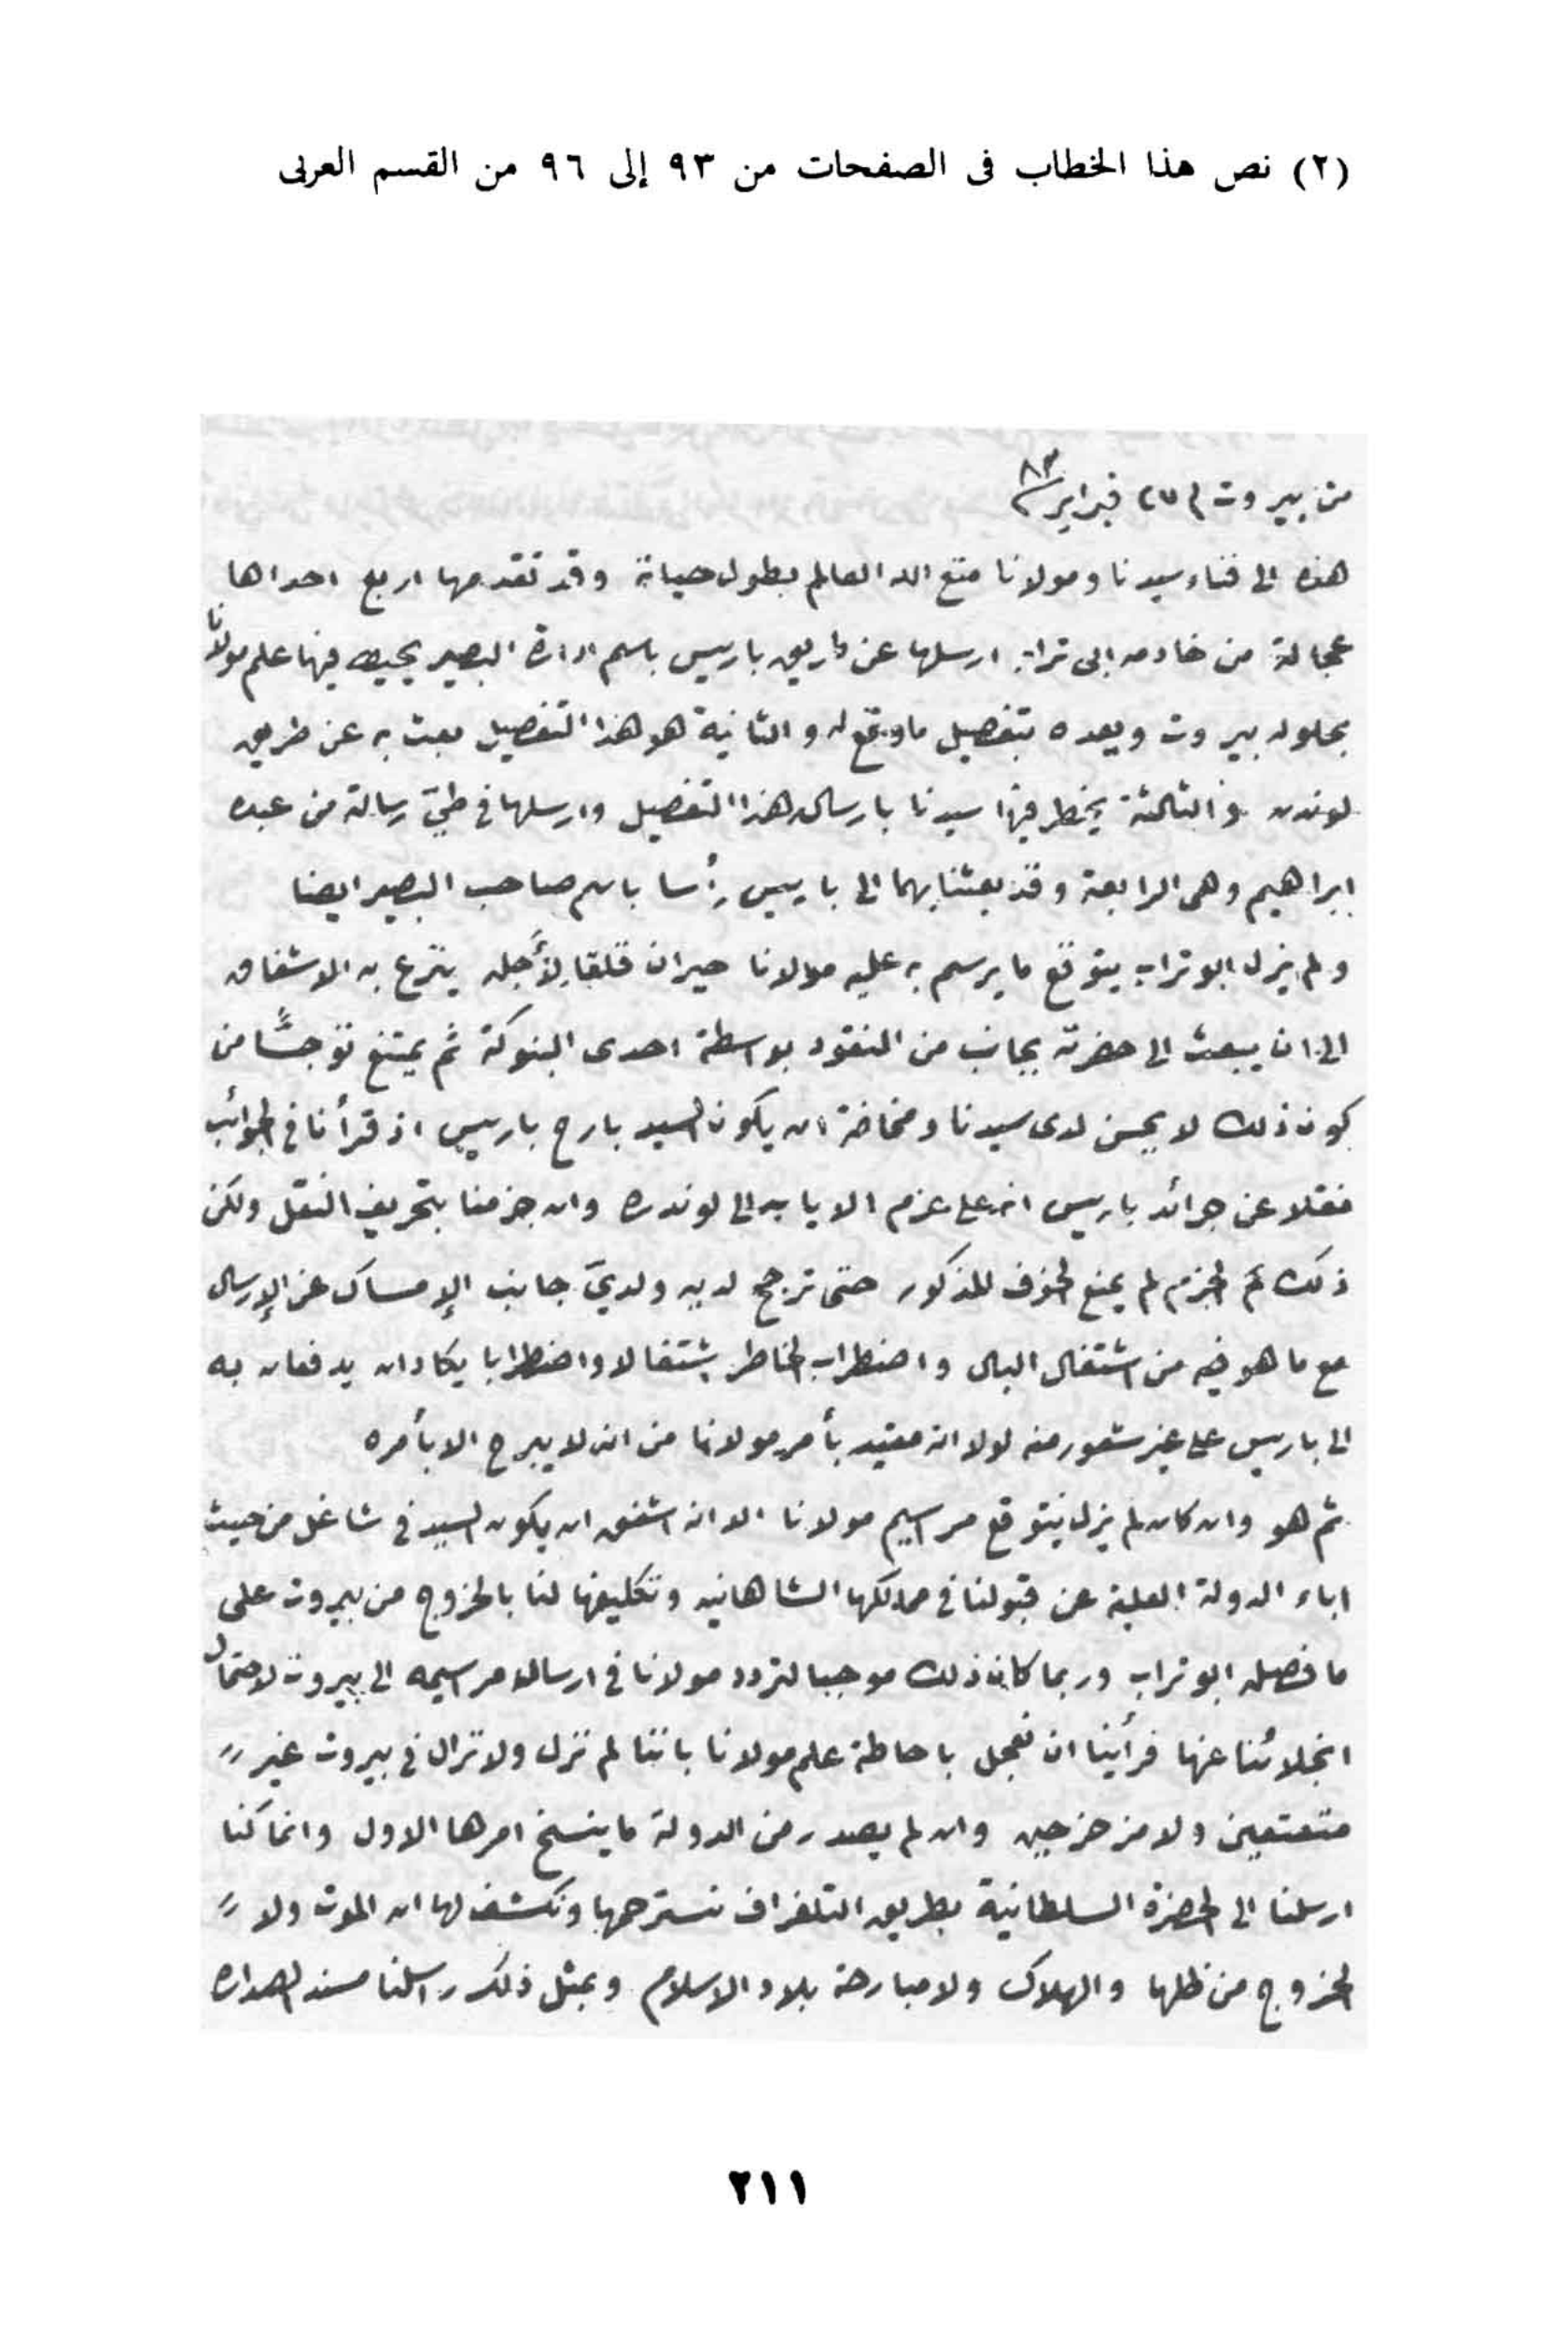 (٢) نص هذا الخطاب فى الصفحات من ٩٣ إلى ٩٦ من القسم العربى
من بيروت فى ٢٧ فبراير ٨٣
هذه الى فناء سيدنا ومولانا متع الله العالم بطول حياته وقد تقدمها اربع احداها
عجالة من خادمه ابى تراب ارسلها عن طريق باريس باسم ادارة البصير يحيط فيها علم مولانا
بحلوله بيروت ويعده بتفصيل ما وقع له والثانية هو هذا التفصيل بعث به عن طريق
لوندره والثالثة يخطر فيها سيدنا بارسال هذا التفصيل وارسلها فى طيّ رسالة من عبده
ابراهيم وهى الرابعة وقد بعثنا بهما الى باريس رأسا باسم صاحب البصير ايضا
ولم يزل ابو تراب يتوقع ما يرسم به عليه مولانا حيران قلقا لأجله ينزع به الاشفاق
الى ان يبعث الى حضرته بجانب من النقود بواسطة احدى البنوكة ثم يمتنع توجسًا من
كون ذلك لا يحسن لدى سيدنا ومخافة ان يكون السيد بارح باريس اذ قرأنا فى الجوائب
نقلا عن جرائد باريس انه على عزم الاياب الى لوندره وان جزمنا بتحريف النقل ولكن
ذلك الجزم لم يمنع الخوف المذكور حتى ترجح لديه ولديّ جانب الإمساك عن الإرسال
مع ما هو فيه من اشتغال البال واضطراب الخاطر اشتغالا واضطرابا يكادان يدفعان به
الى باريس على غير شعور منه لولا انه مقيد بأمر مولانا من ان لا يبرح الا بأمره
ثم هو وان كان لم يزل يتوقع مراسيم مولانا الا انه اشفق ان يكون السيد فى شاغل من حيث
اباء الدولة العلية عن قبولنا فى ممالكها الشاهانيه وتكليفها لنا بالخروج من بيروت على
ما فصله ابو تراب وربما كان ذلك موجبا لتردد مولانا فى ارسال مراسيمه الى بيروت لاحتمال
انجلائنا عنها فرأينا ان نعجل باحاطة علم مولانا باننا لم نزل ولا نزال فى بيروت غير
متعتعين ولا مزحزحين وان لم يصدر من الدولة ما ينسخ امرها الاول وانما كنا
ارسلنا الى الحضرة السلطانية بطريق التلغراف نسترحمها ونكشف لها ان الموت ولا
الخروج من ظلها والهلاك ولا مبارحة بلاد الاسلام وبمثل ذلك راسلنا مسند الصداره
٢١١